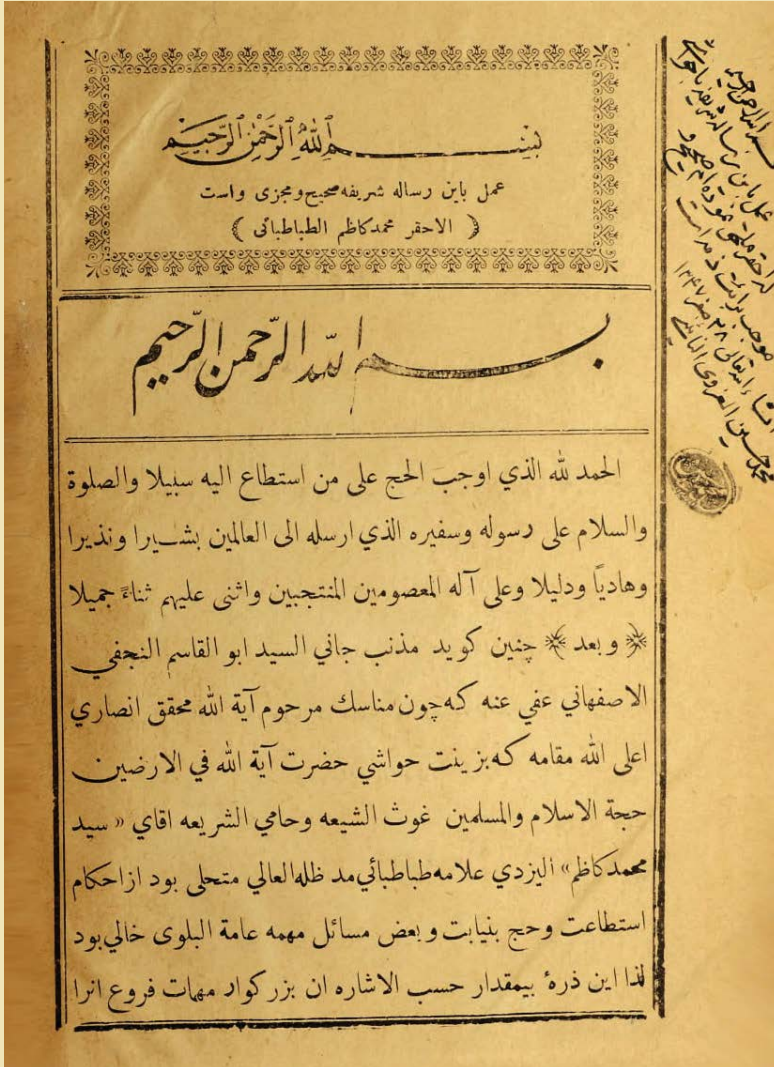 بسم الله الرحمن الرحيم
عمل باين رساله شريفه صحيح و مجزى واست
﴿ الاحقر محمد كاظم الطباطبائى ﴾
بسم الله الرحمن الرحيم
الحمد لله الذي اوجب الحج على من استطاع اليه سبيلا والصلوة
والسلام على رسوله وسفيره الذي ارسله الى العالمين بشيرا ونذيرا
وهادياً ودليلا وعلى آله المعصومين المنتجبين واثنى عليهم ثناءً جميلا
﴿ وبعد ﴾ چنين كويد مذنب جاني السيد ابو القاسم النجفي
الاصفهاني عفي عنه كه چون مناسك مرحوم آية الله محقق انصاري
اعلى الله مقامه كه بزينت حواشي حضرت آية الله في الارضين
حجة الاسلام والمسلمين غوث الشيعه وحامي الشريعه اقاي « سيد
محمد كاظم » اليزدي علامه طباطبائي مد ظله العالي متحلى بود از احكام
استطاعت وحج بنيابت وبعض مسائل مهمه عامة البلوى خالي بود
لذا اين ذرهٔ بيمقدار حسب الاشاره ان بزركوار مهمات فروع انرا
بسم الله الرحمن الرحيم
عمل باين رساله شريفه با حواشى
كه احقر ملحق نموده ام صحيح و
موجب برائت ذمه است
انشاء الله تعالى ٢٨ صفر ١٣٤٧
محمد حسين الغروى النائينى